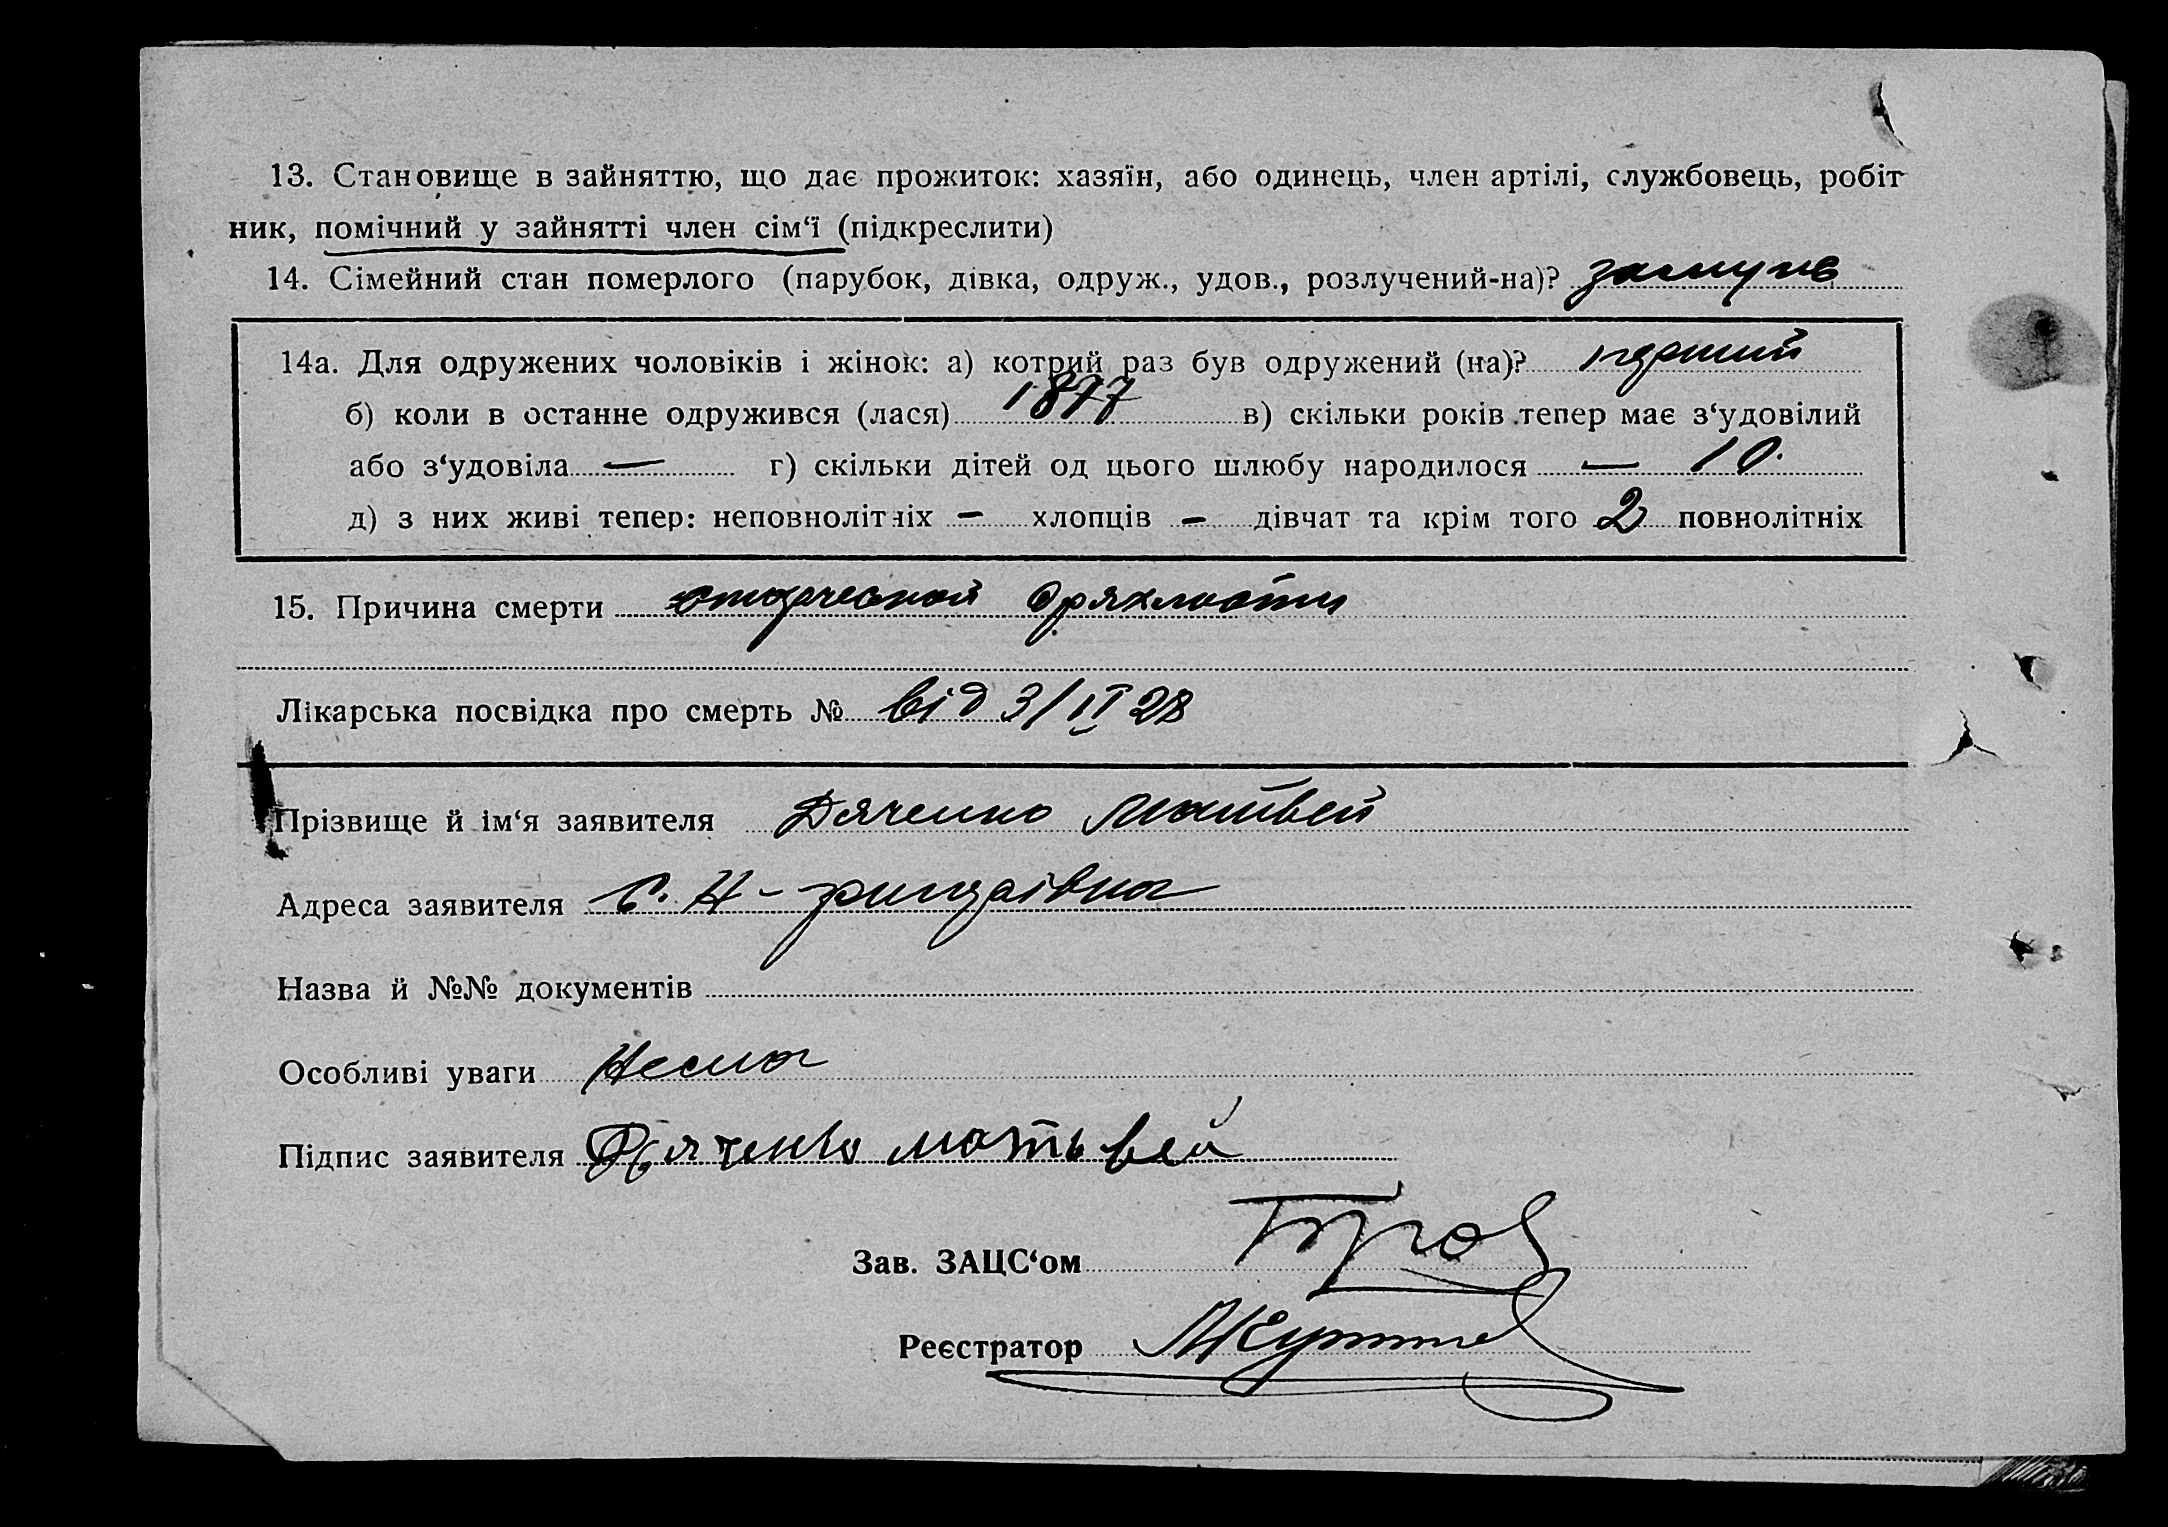 13. Становище в зайняттю, що дає прожиток: хазяїн, або одинець, член артілі, службовець, робіт
ник, помічний у зайнятті член сім‘ї (підкреслити)
14. Сімейний стан померлого (парубок, дівка, одруж., удов., розлучений-на)?
14а. Для одружених чоловіків і жінок: а) котрий раз був одружений (на)? перший
б) коли в останне одружився (лася) 1877 в) скільки років тепер має з‘удовілий
або з‘удовіла — г) скільки дітей од цього шлюбу народилося — 10.
д) з них живі тепер: неповнолітніх – хлопців – дівчат та крім того 2 повнолітніх
15. Причина смерти старческой дряхлости
Лікарська посвідка про смерть № від 3/II 28
Прізвище й ім‘я заявителя Дяченко Матвей
Адреса заявителя с. Н-
Назва й №№ документів
Особливі уваги Нема
Підпис заявителя Дяченко матьвей
Зав. ЗАЦС‘ом
Реєстратор